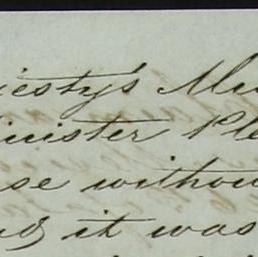 iesty's Mi
inister Ple
se withou
ng it was